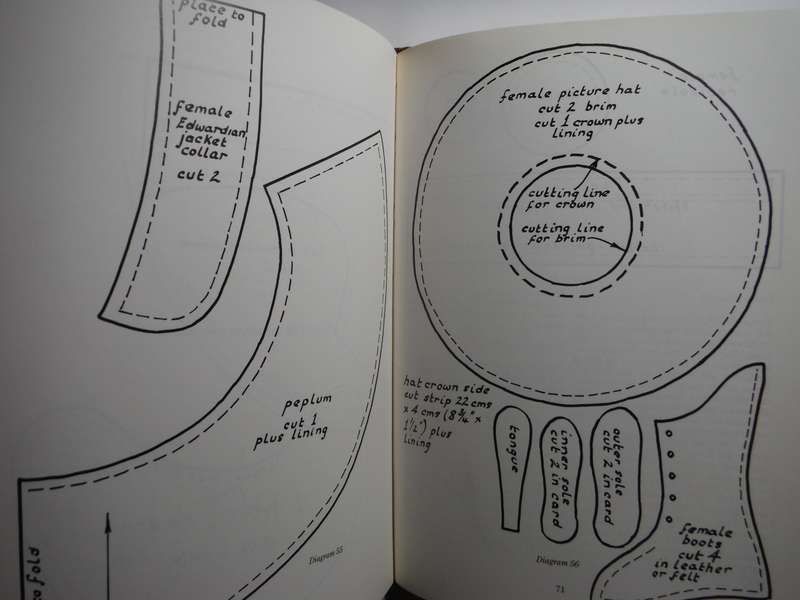 place to
fold
female
Edwardian
jacket
collar
cut 2
peplum
cut 1
plus lining
to fold
Diagram 55
female picture hat
cut 2 brim
cut 1 crown plus
lining
cutting line
for crown
cutting line
for brim
hat crown side
cut strip 22 cms
x 4 cms (8¾" x
1½") plus
lining
tongue
inner sole
cut 2 in card
outer sole
cut 2 in card
female
boots
cut 4
in leather
or felt
Diagram 56
71